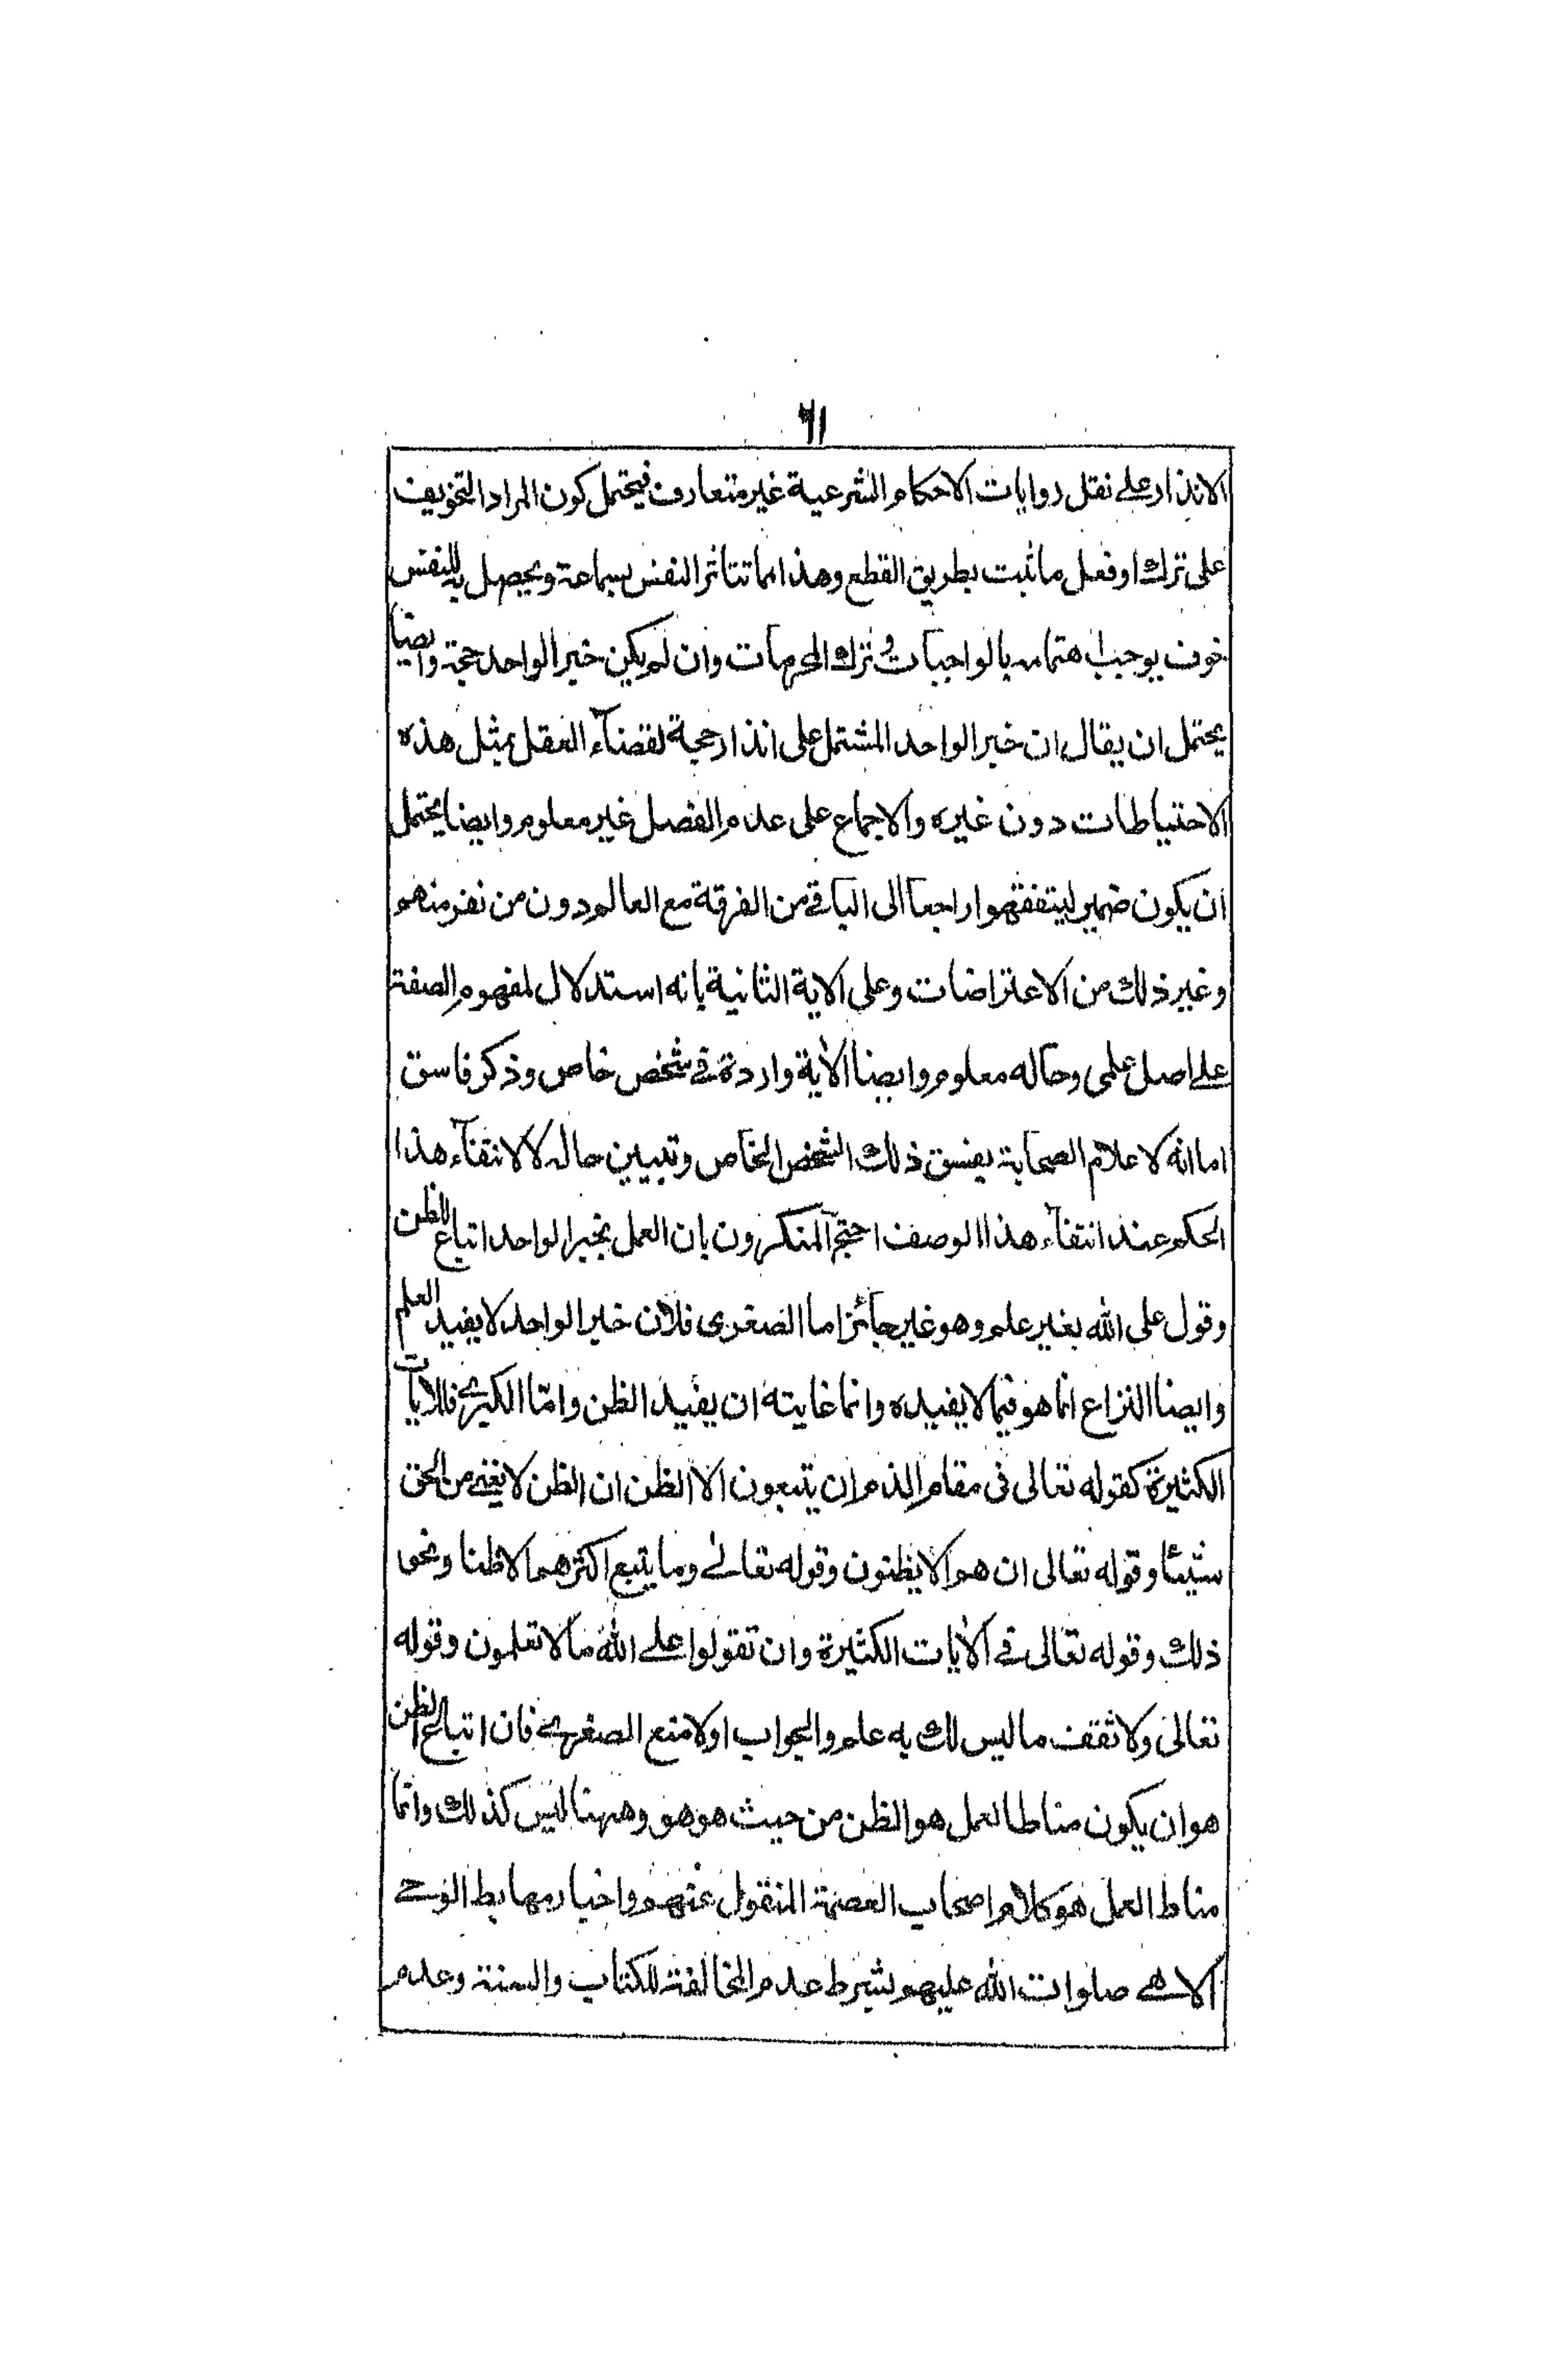 ٦١
الانذار على نقل روايات الاحكام الشرعية غير متعارف فيحتمل كون المراد التخويف
على ترك او فعل ما ثبت بطريق القطع وهذا مما تتاثر النفس بسماعة ويحصل به للنفس
خوف يوجب اهتمامه بالواجبات وترك المحرمات وان لم يكن خبر الواحد حجة وايضا
يحتمل ان يقال ان خبر الواحد المشتمل على انذار حجية لقضآء العقل بمثل هذه
الاحتياطات دون غيره والاجماع على عدم الفصل غير معلوم وايضا يحتمل
ان يكون ضمير ليتفقهوا راجعا الى الباقي من الفرقة مع العالم دون من نفر منهم
وغير ذلك من الاعتراضات وعلى الاية الثانية بانه استدلال لمفهوم الصفة
على اصل علمى وحاله معلوم وايضا الاية واردة في شخص خاص وذكر فاسق
اما انه لا علام الصحابة بفسق ذلك الشخص الخاص وتبيين حاله لا لانتفآء هذا
الحكم عند انتفآء هذا الوصف احتج المنكرون بان العمل بخبر الواحد اتباع للظن
وقول على الله بغير علم وهو غير جآئز اما الصغرى فلان خبر الواحد لا يفيد العلم
وايضا النزاع انما هو فيما لا يفيده وانما غايته ان يفيد الظن وامّا الكبرى فللايات
الكثيرة كقوله تعالى فى مقام الذم ان يتبعون الا الظن ان الظن لا يغني من الحق
شيئا وقوله تعالى ان هم الا يظنون وقوله تعالى وما يتبع اكثرهم الا ظنا ونحو
ذلك وقوله تعالى في الايات الكثيرة وان تقولوا على الله ما لا تعلمون وقوله
تعالى ولا تقف ما ليس لك به علم والجواب اولا منع الصغرى فان اتباع الظن
هو ان يكون مناط العمل هو الظن من حيث هو هو وههنا ليس كذلك وانما
مناط العمل هو كلام اصحاب العصمة المنقول عنهم واخبار مهابط الوحي
الالهي صلوات الله عليهم بشرط عدم المخالفة للكتاب والسنة وعدم